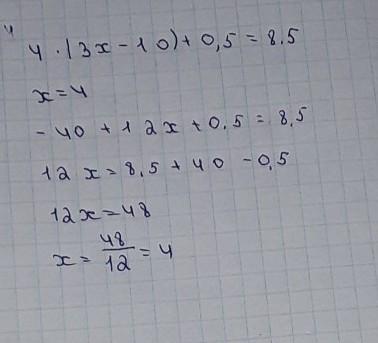 4
4 · (3x - 10) + 0,5 = 8.5
x = 4
- 40 + 12x + 0.5 = 8,5
12 x = 8,5 + 40 - 0,5
12x = 48
x = 48/12 = 4